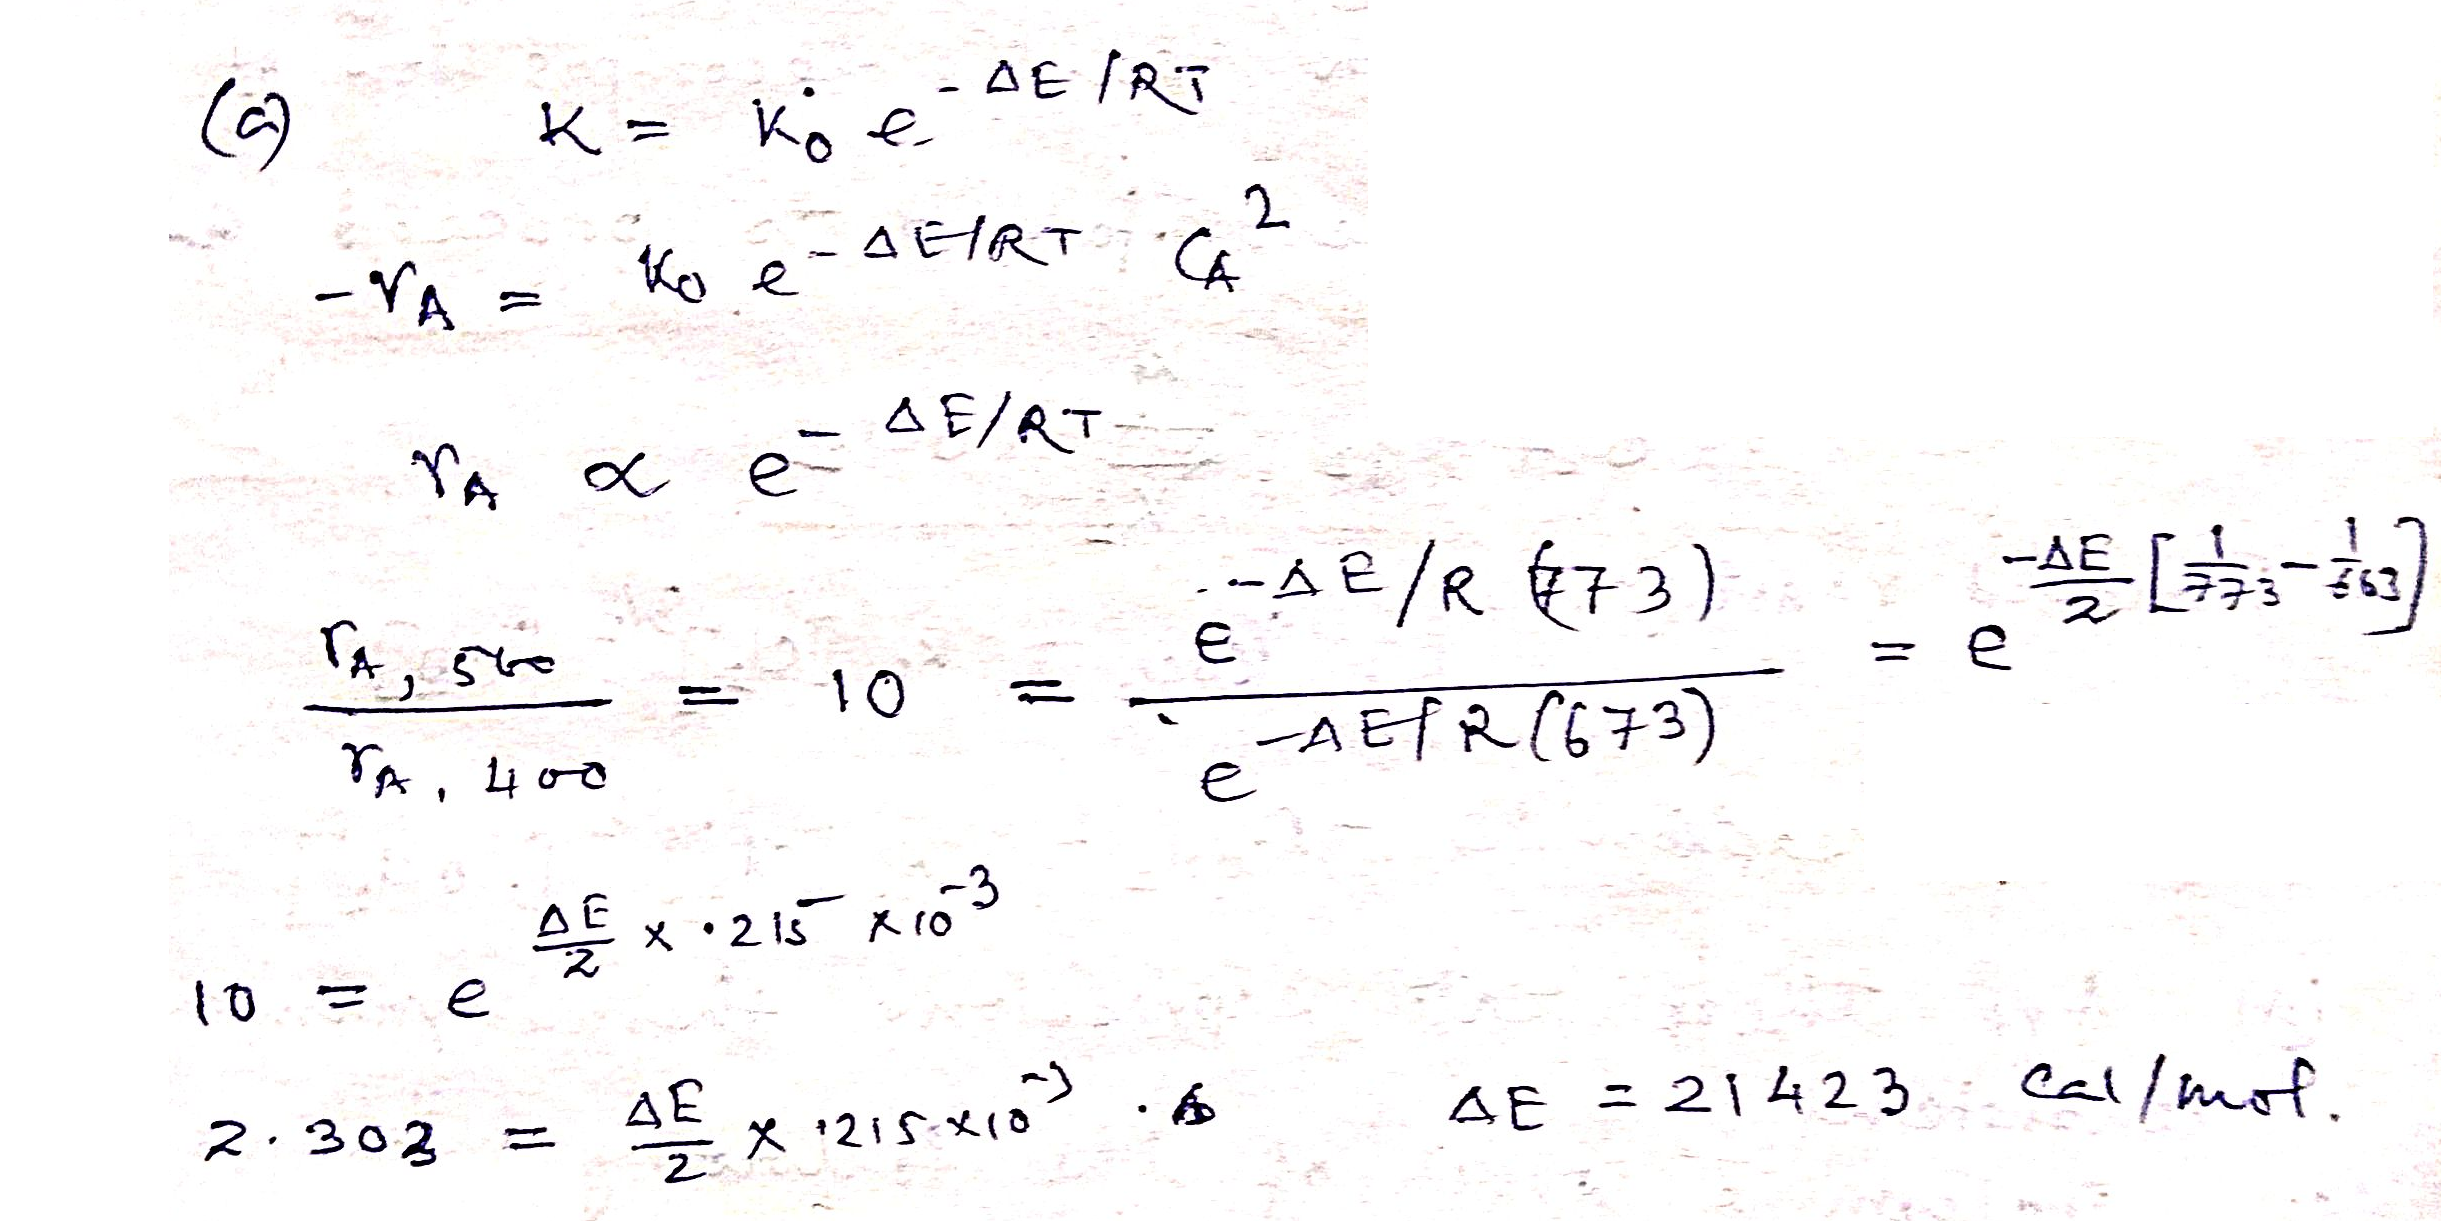 (a) K = K₀ e^{-ΔE/RT}
-r_A = K₀ e^{-ΔE/RT} C_A²
r_A ∝ e^{-ΔE/RT}
r_A,500 / r_A,400 = 10 = e^{-ΔE/R(773)} / e^{-ΔE/R(673)} = e^{-ΔE/2 [1/773 - 1/663]}
10 = e^{ΔE/2 × .215 × 10^{-3}}
2.303 = ΔE/2 × .215 × 10^{-3} . ΔE = 21423 Cal/mol.